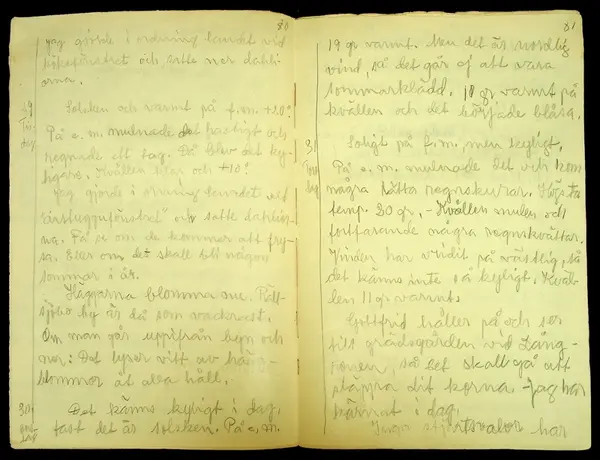 80
jag gjorde i ordning landet vid
köksfönstret och satte ner dahli-
orna.
29
Tis-
dag
Solsken och varmt på f.m. +20°.
På e.m. mulnade det hastigt och
regnade ett tag. Då blev det ky-
ligare. Kvällen klar och +10°.
Jag gjorde i ordning landet vid
och satte dahlior-
na. Få se om de kommer att fry-
sa. Eller om det skall bli någon
sommar i år.
Häggarna blomma nu. Rätt-
sjöbo by är då som vackrast.
Om man går uppifrån byn och
ner: Det lyser vitt av hägg-
blommor åt alla håll.
30
Det känns kyligt i dag,
fast det är solsken. På e.m.
81
19 gr varmt. Men det är nordlig
vind, så det går ej att vara
sommarklädd. 10 gr varmt på
kvällen och det började blåsa.
31
Soligt på f.m. men kyligt.
På e.m. mulnade det och kom
några lätta regnskurar. Högsta
temp. 20 gr. - Kvällen mulen och
fortfarande några regnskvättar.
Vinden har vridit på västlig, så
det känns inte så kyligt. Kväl-
len 11 gr varmt.
Gottfrid håller på och ser
till grädsgården vid Läng-
så det skall gå att
släppa dit korna. - Jag har
kärnat i dag.
Inga stjärtsvalor har